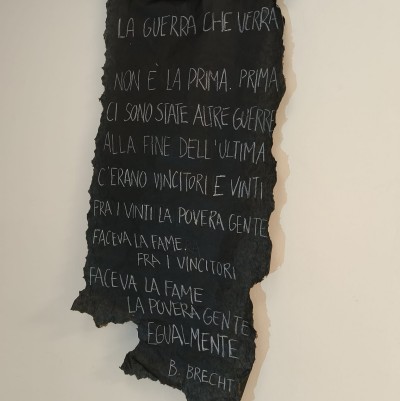 LA GUERRA CHE VERRA
NON È LA PRIMA. PRIMA
CI SONO STATE ALTRE GUERRE
ALLA FINE DELL'ULTIMA
C'ERANO VINCITORI E VINTI
FRA I VINTI LA POVERA GENTE
FACEVA LA FAME.
FRA I VINCITORI
FACEVA LA FAME
LA POVERA GENTE
EGUALMENTE
B. BRECHT